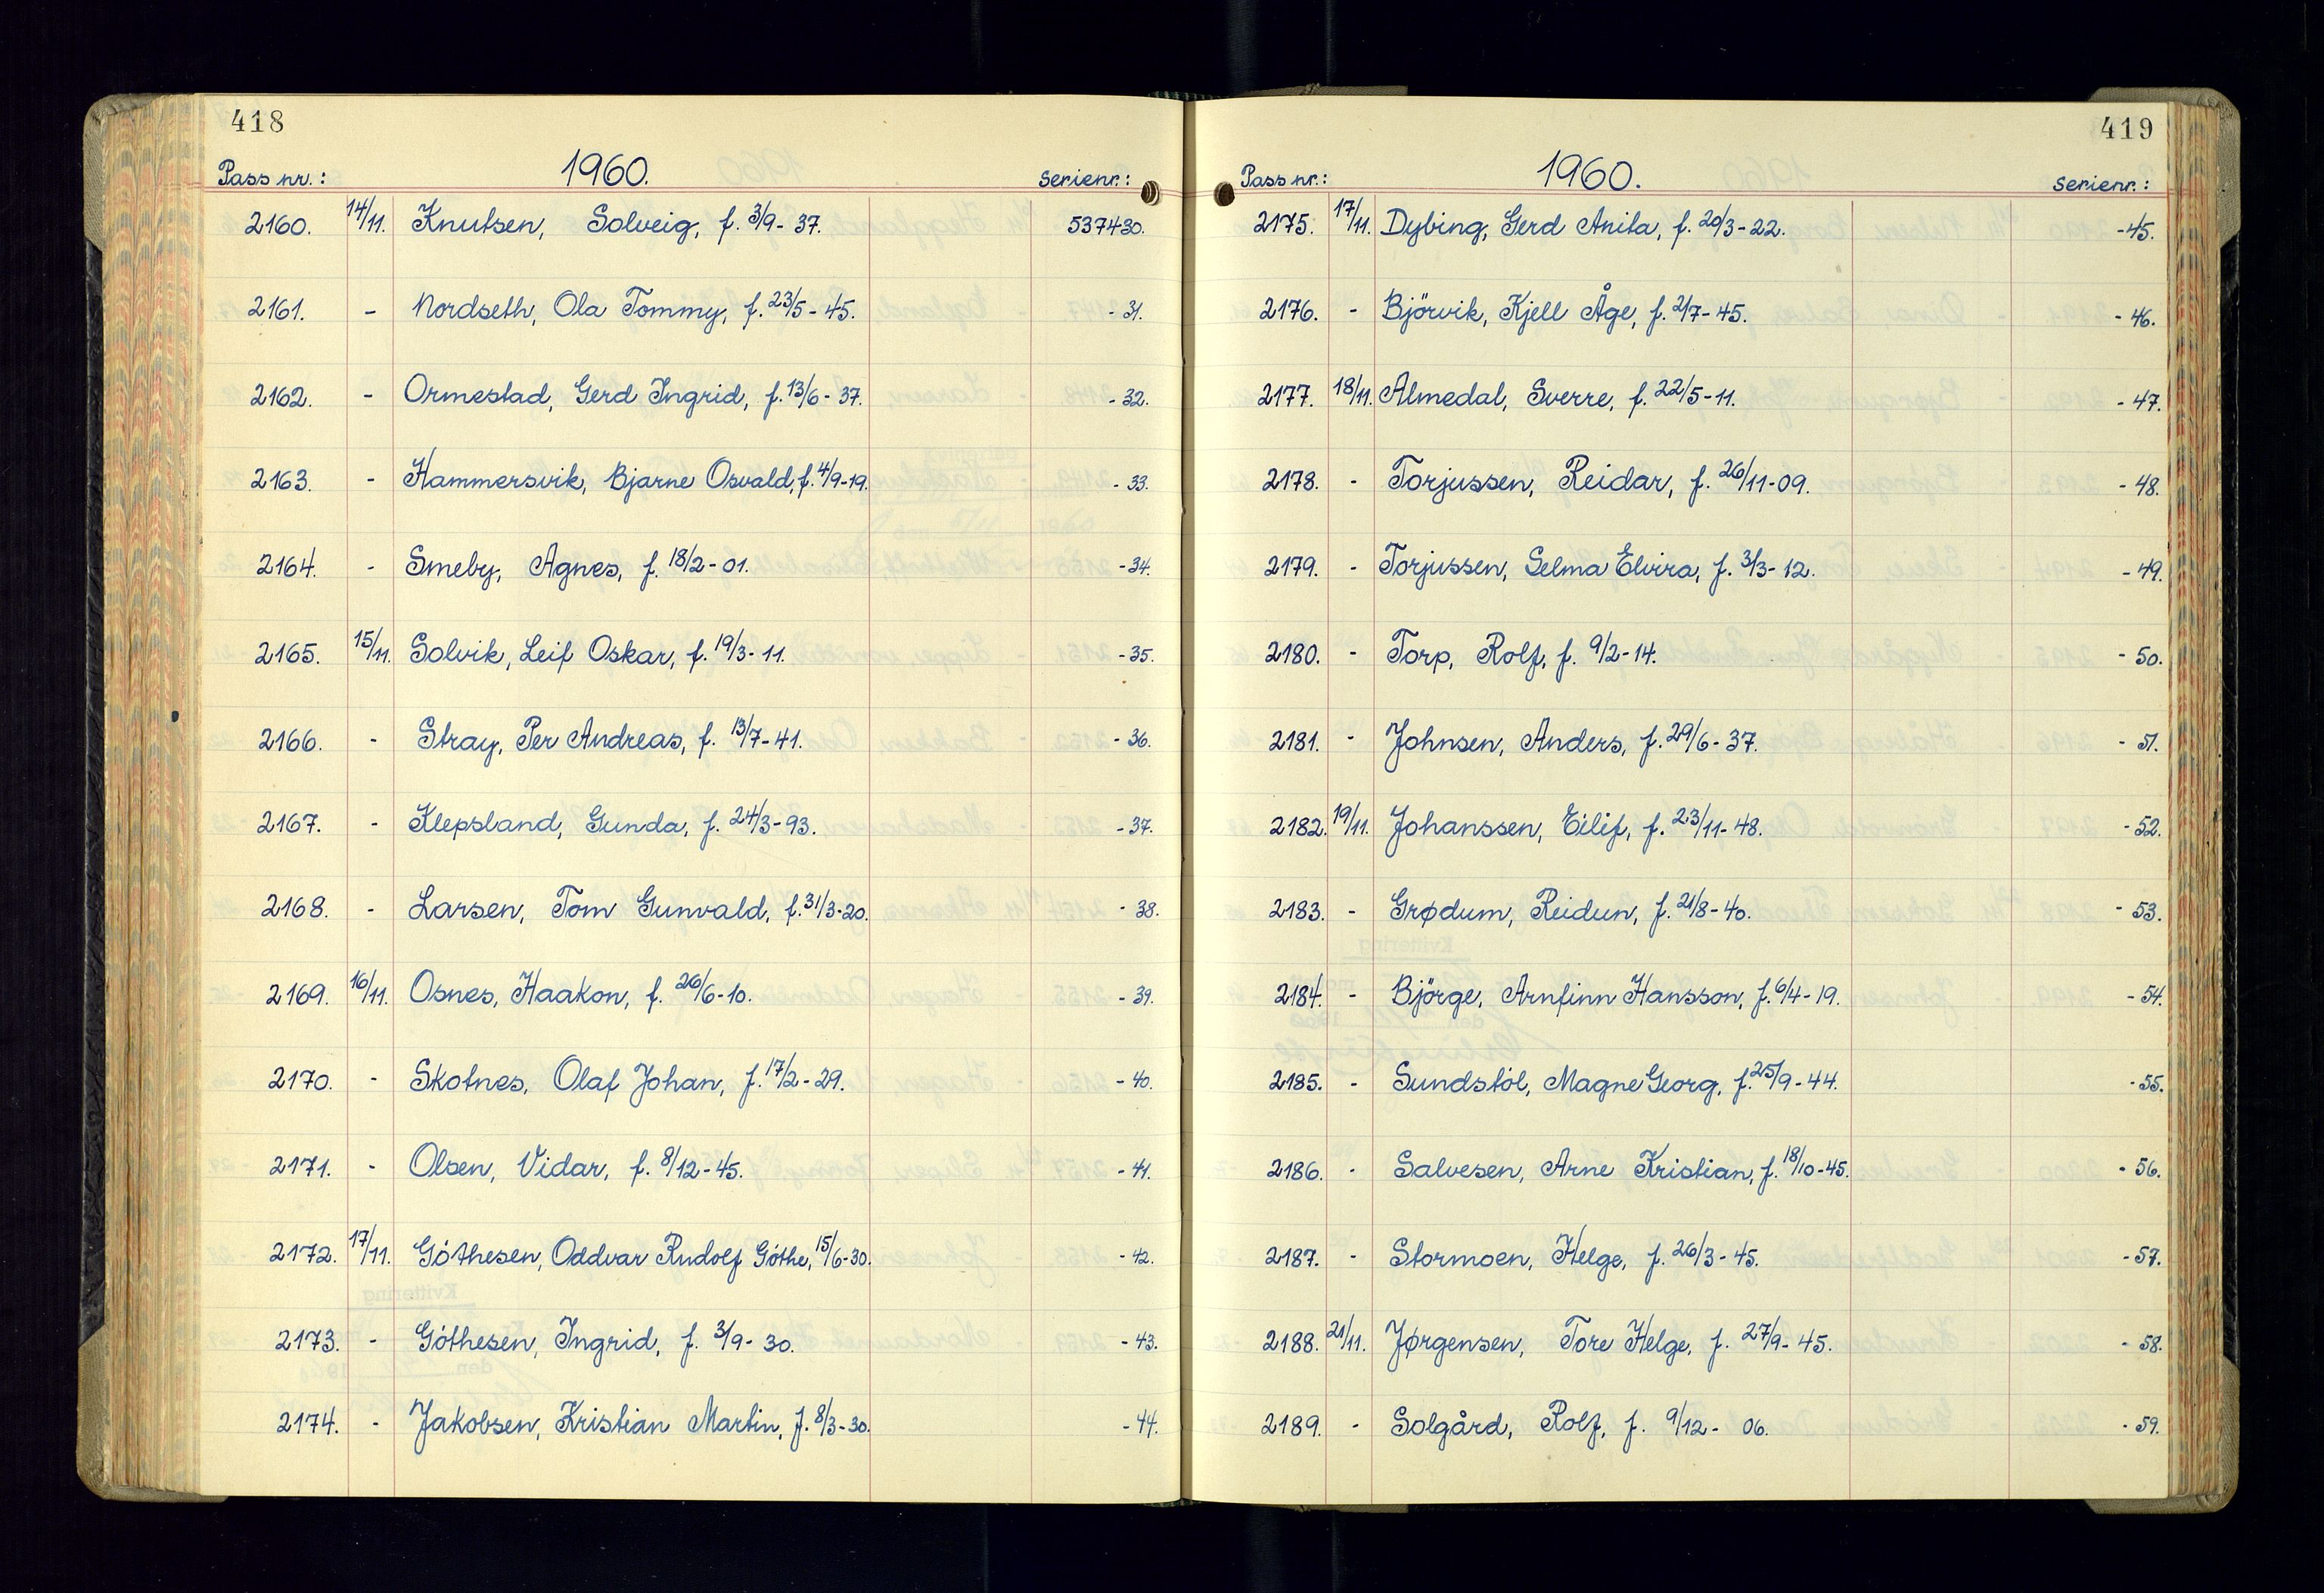 418
Pass nr.: 1960. Serienr.:
2160. 14/11. Knutsen, Solveig, f. 3/9-37. 537430.
2161. - Nordseth, Ola Tommy, f. 23/5-45. -31.
2162. - Ormestad, Gerd Ingrid, f. 13/6-37. -32.
2163. - Hammersvik, Bjarne Osvald, f. 4/9-19. -33.
2164. - Smeby, Agnes, f. 18/2-01. -34.
2165. 15/11. Solvik, Leif Oskar, f. 19/3-11. -35.
2166. - Stray, Per Andreas, f. 13/7-41. -36.
2167. - Klepsland, Gunda, f. 24/3-93. -37.
2168. - Larsen, Tom Gunvald, f. 31/3-20. -38.
2169. 16/11. Osnes, Haakon, f. 26/6-10. -39.
2170. - Skotnes, Olaf Johan, f. 17/2-29. -40.
2171. - Olsen, Vidar, f. 8/12-45. -41.
2172. 17/11. Góthesen, Oddvar Rudolf Góthe, 15/6-30. -42.
2173. - Góthesen, Ingrid, f. 3/9-30. -43.
2174. - Jakobsen, Kristian Martin, f. 8/3-30. -44.
419
Pass nr.: 1960. Serienr.:
2175. 17/11. Dybing, Gerd Anita, f. 20/3-22. -45.
2176. - Björvik, Kjell Åge, f. 2/7-45. -46.
2177. 18/11. Almedal, Sverre, f. 22/5-11. -47.
2178. - Torjussen, Reidar, f. 26/11-09. -48.
2179. - Torjussen, Selma Elvira, f. 3/3-12. -49.
2180. - Torp, Rolf, f. 9/2-14. -50.
2181. - Johnsen, Anders, f. 29/6-37. -51.
2182. 19/11. Johanssen, Eilif, f. 23/11-48. -52.
2183. - Grødum, Reidun, f. 21/8-40. -53.
2184. - Björge, Arnfinn Hansson, f. 6/4-19. -54.
2185. - Sundstöl, Magne Georg, f. 25/9-44. -55.
2186. - Salvesen, Arne Kristian, f. 18/10-45. -56.
2187. - Stormoen, Helge, f. 26/3-45. -57.
2188. 21/11. Jørgensen, Tore Helge, f. 27/9-45. -58.
2189. - Solgård, Rolf, f. 9/12-06. -59.